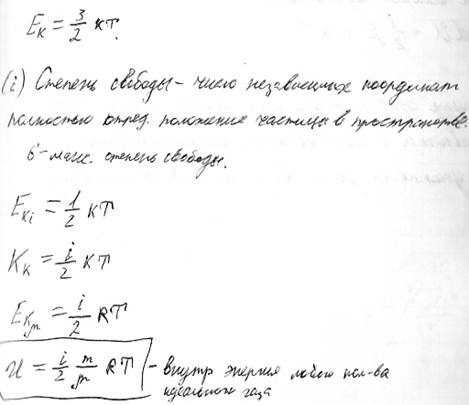 Eк = 3/2 кT.
(i) Степень свободы – число независимых координат
полностью опред. положение частицы в пространстве
6 – макс. степень свободы.
Eкi = 1/2 кT
Kк = i/2 кT
Eкm = i/2 RT
U = i/2 m/μ RT – внутр энергия любого кол-ва
идеального газа